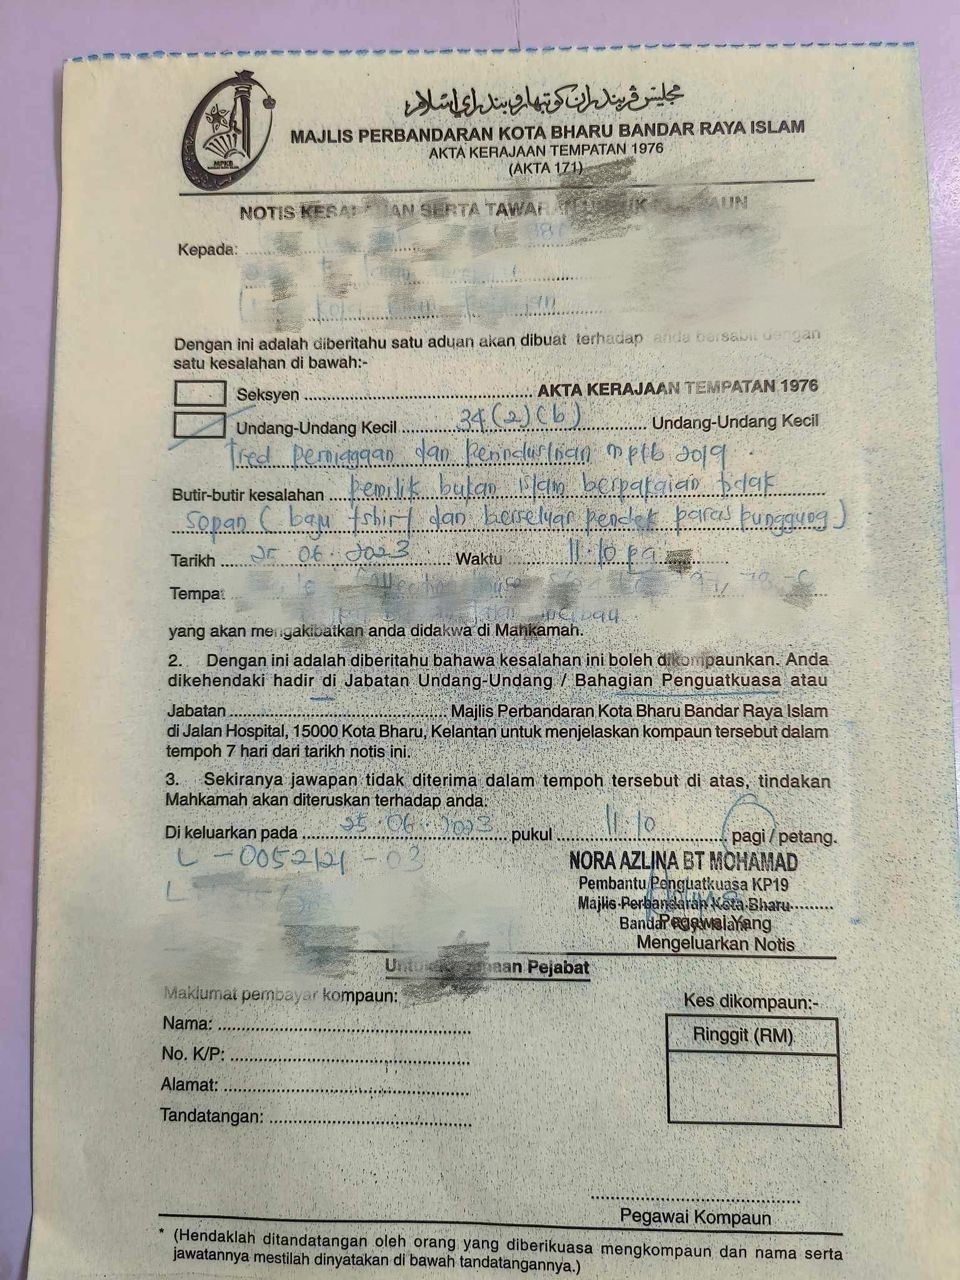 مجليس ڤربندرن كوتا بهارو بندر راي اسلام
MPKB
MAJLIS PERBANDARAN KOTA BHARU BANDAR RAYA ISLAM
AKTA KERAJAAN TEMPATAN 1976
(AKTA 171)
NOTIS KESALAHAN SERTA TAWARAN UNTUK KOMPAUN
Kepada:
Dengan ini adalah diberitahu satu aduan akan dibuat terhadap anda bersabit dengan
satu kesalahan di bawah:-
Seksyen AKTA KERAJAAN TEMPATAN 1976
Undang-Undang Kecil 34(2)(b) Undang-Undang Kecil
Tred Perniagaan dan Perindustrian mpkb 2019
Butir-butir kesalahan pemilik bukan islam berpakaian tidak
sopan (baju tshirt dan berseluar pendek paras punggung)
Tarikh 25.06.2023 Waktu 11.10 pg
Tempat
yang akan mengakibatkan anda didakwa di Mahkamah.
2. Dengan ini adalah diberitahu bahawa kesalahan ini boleh dikompaunkan. Anda
dikehendaki hadir di Jabatan Undang-Undang / Bahagian Penguatkuasa atau
Jabatan Majlis Perbandaran Kota Bharu Bandar Raya Islam
di Jalan Hospital, 15000 Kota Bharu, Kelantan untuk menjelaskan kompaun tersebut dalam
tempoh 7 hari dari tarikh notis ini.
3. Sekiranya jawapan tidak diterima dalam tempoh tersebut di atas, tindakan
Mahkamah akan diteruskan terhadap anda.
Di keluarkan pada 25.06.2023 pukul 11.10 pagi / petang.
L-0052121-03
L
NORA AZLINA BT MOHAMAD
Pembantu Penguatkuasa KP19
Majlis Perbandaran Kota Bharu
Bandar Raya Islam
Pegawai Yang
Mengeluarkan Notis
Untuk Kegunaan Pejabat
Maklumat pembayar kompaun:
Kes dikompaun:-
Nama:
Ringgit (RM)
No. K/P:
Alamat:
Tandatangan:
Pegawai Kompaun
* (Hendaklah ditandatangan oleh orang yang diberikuasa mengkompaun dan nama serta
jawatannya mestilah dinyatakan di bawah tandatangannya.)